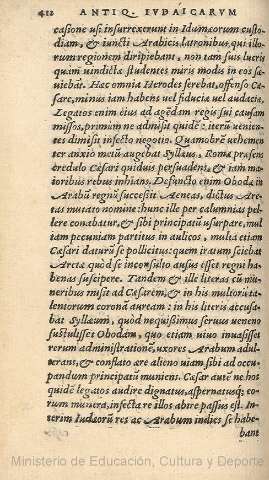 412 ANTIQ. IVDAICARVM
casione usi insurrexerunt in Idumæorum custo-
diam, & iuncti Arabicis latronibus, qui illo-
rum regionem diripiebant, non tam suis lucris
quàm vindictæ studentes miris modis in eos sæ
uiebāt. Hæc omnia Herodes ferebat, offenso Cæ
sare, minus iam habens uel fiducia uel audacia.
Legatos enim eius ad agēdam regis sui causam
missos, primum ne admisit quidē: iterū uenien-
tes dimisit infecto negotio. Quamobrē uehemen
ter anxio metū augebat Syllæus, Romæ præsens
credulo Cæsari quiduis persuadens, & iam ma-
ioribus rebus inhians. Defuncto enim Oboda in
Arabū regnū successit Aeneas, dictus Are-
tas mutato nomine: hunc ille per calumnias pel-
lere conabatur, & sibi principatū usurpare, mul
tam pecuniam partitus in aulicos, multa etiam
Cæsari daturū se pollicitus: quem iratum sciebat
Aretæ quòd se inconsulto ausus esset regni ha-
benas suscipere. Tandem & ille literas cū mu-
neribus misit ad Cæsarem, & in his multorū ta-
lentorum coronā auream: in his literis accusa-
bat Syllæum, quòd nequissimus seruus ueneno
sustulisset Obodam, quo etiam uiuo inuasisset
rerum administrationē, uxores Arabum adul-
terans, & conflato ære alieno uiam sibi ad occu-
pandum principatū muniens. Cæsar autē ne hos
quidē legatos audire dignatus, aspernatusq; eo-
rum munera, infecta re illos abire passus est. In-
terim Iudæorū res ac Arabum indies se habe-
bant
Ministerio de Educación, Cultura y Deporte